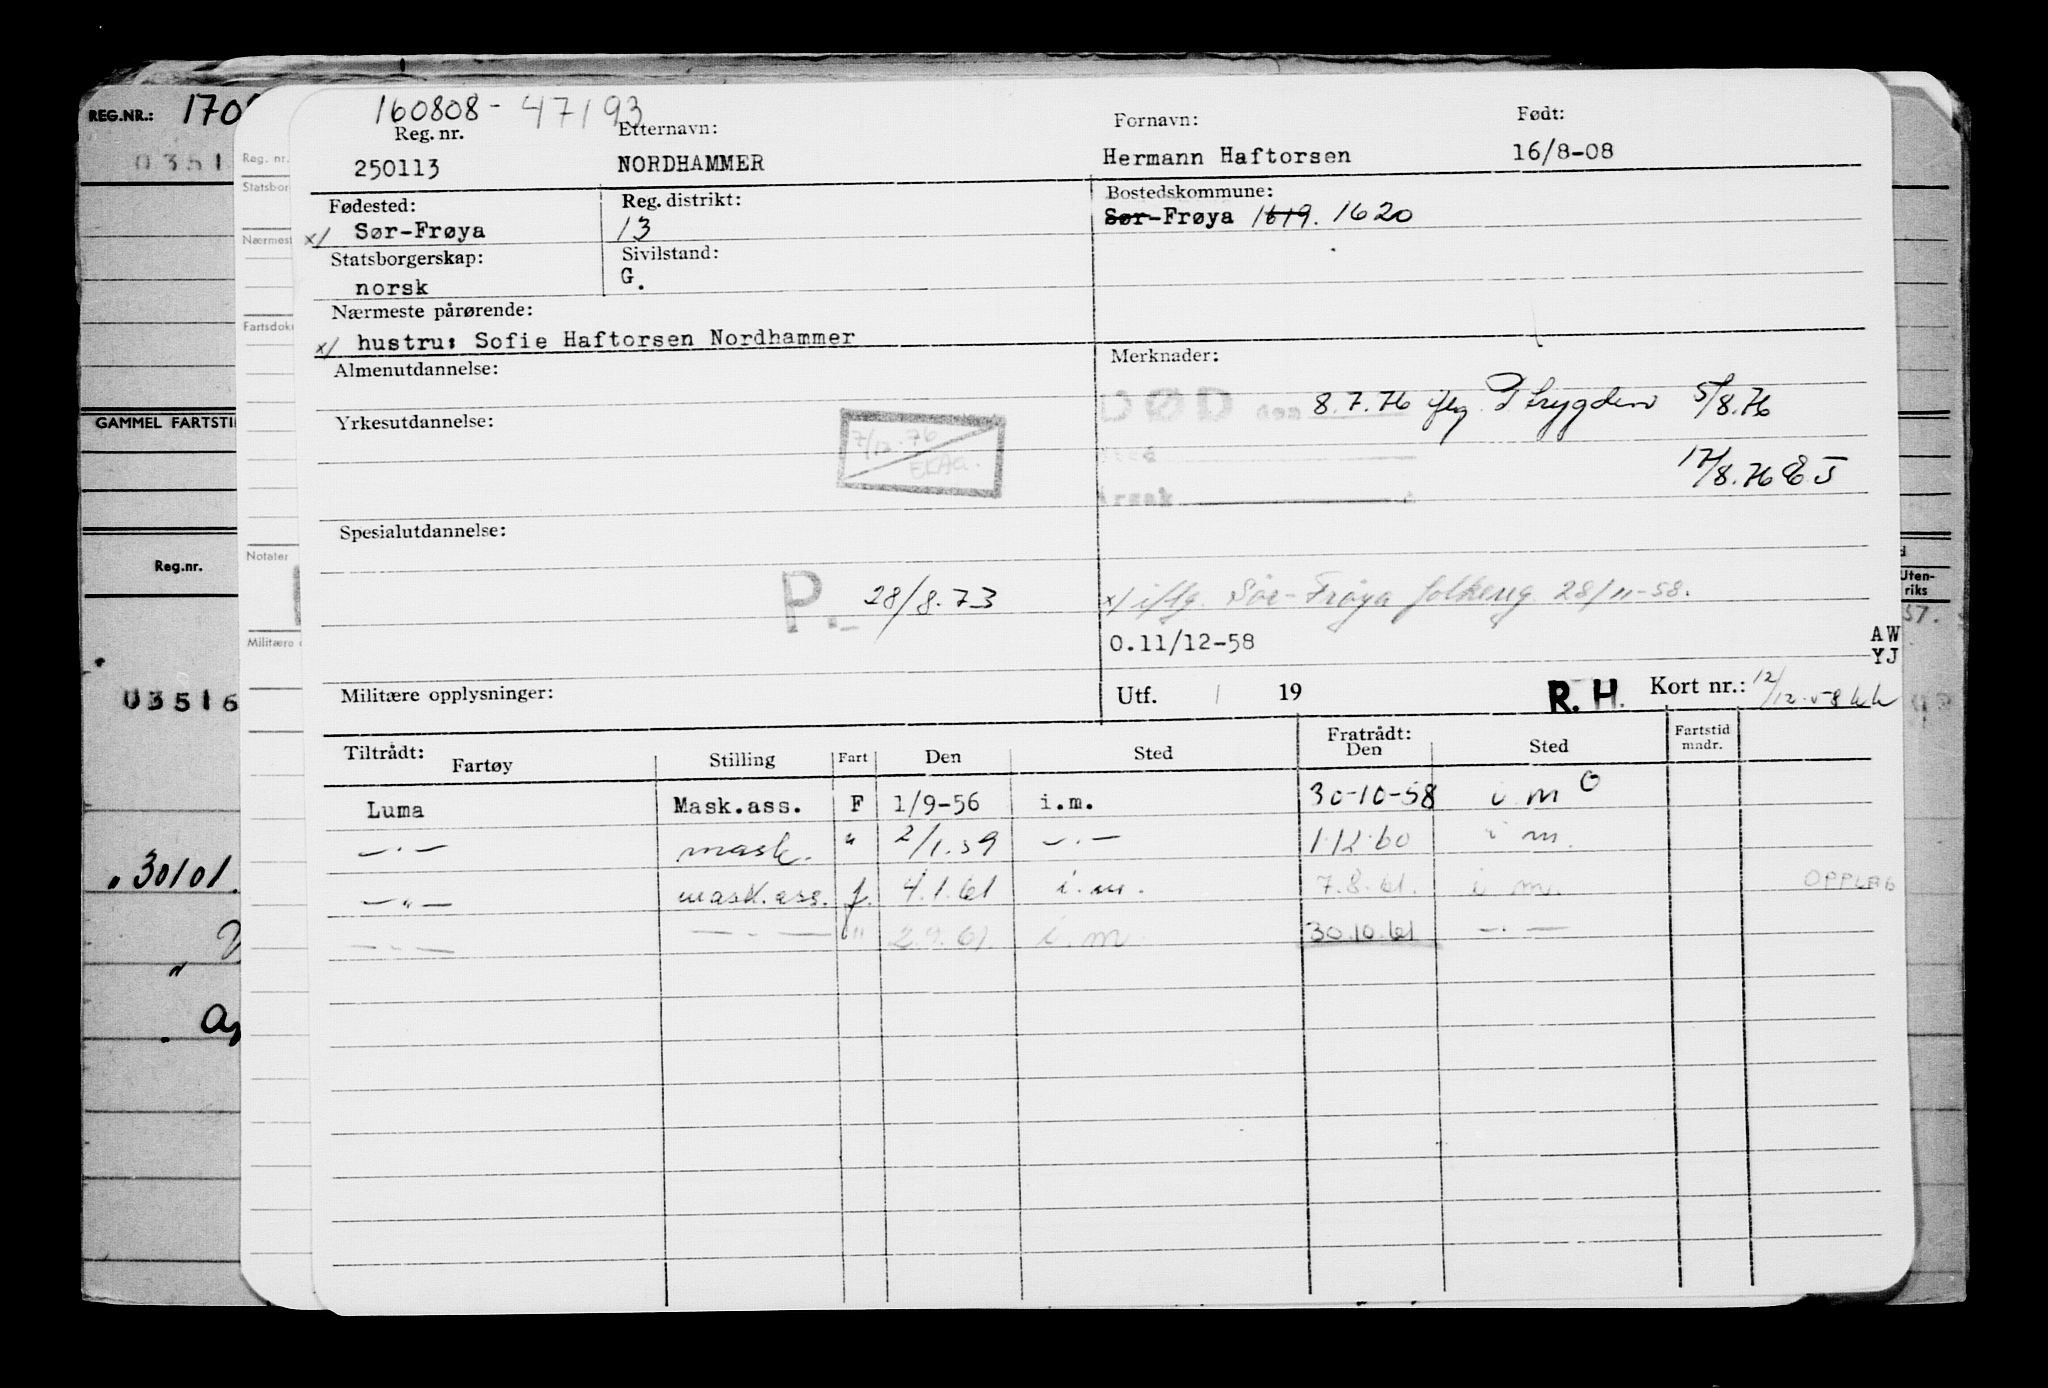 REG.NR.: 170
0351
GAMMEL FARTSTI
Reg.nr.
03516
30101.
Reg. nr.
Statsbor
Nærmest
Fartsdoku
Notater
Militære o
160808-47193
Reg. nr. Etternavn: Fornavn: Født:
250113 NORDHAMMER Hermann Haftorsen 16/8-08
Fødested: Reg. distrikt: Bostedskommune:
x/ Sør-Frøya 13 Sør-Frøya 1619. 1620
Statsborgerskap: Sivilstand:
norsk G.
Nærmeste pårørende:
x/ hustru: Sofie Haftorsen Nordhammer
Almenutdannelse: Merknader:
DØD den 8.7.76 iflg. P trygden 5/8.76
Yrkesutdannelse:
7/12.76
EKAa.
17/8.76
Årsak
Spesialutdannelse:
P. 28/8.73 x/ iflg. Sør-Frøya folkereg. 28/11-58.
0.11/12-58 AW
YJ
Militære opplysninger: Utf. 19 R.H. Kort nr.: 12/12-58
Tiltrådt: Fartøy Stilling Fart Den Sted Fratrådt: Den Sted Fartstid mndr.
Luma Mask.ass. F 1/9-56 i.m. 30-10-58 i m O
—.— mask. " 2/1.59 —.— 1.12.60 i m.
—"— mask.ass. f. 4.1.61 i.m. 7.8.61. i m. OPPLAG
—.— —.— " 2.9.61 i.m 30.10.61 —.—
Uten-
riks
57.